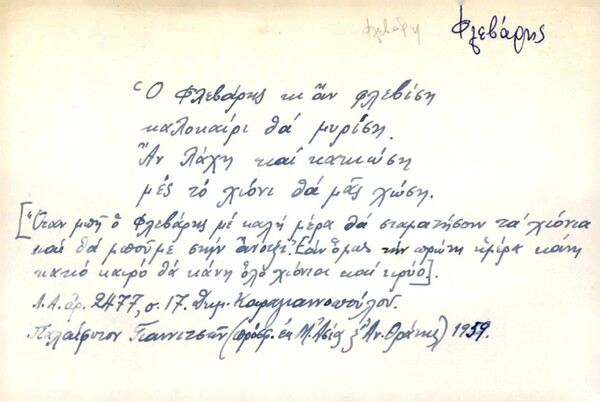 Φλεβάρη Φλεβάρης
Ὁ Φλεβάρης κι ἂν φλεβίση
καλοκαίρι θά μυρίση.
Ἄν λάχη καί κακιώση
μές τό χιόνι θά μᾶς χώση.
[Ὅταν μπῆ ὁ Φλεβάρης μέ καλή μέρα θά σταματήσουν τά χιόνια
καί θά μποῦμε στήν ἄνοιξι. Ἐάν ὅμως τήν πρώτη ἡμέρα κάνη
κακό καιρό θά κάνη ὅλο χιόνια καί κρύο].
Λ.Α. ἀρ. 2477, σ. 17. Δημ. Καραγιαννοπούλου.
Παλαίφυτον Γιαννιτσῶν (πρόσφ. ἐκ Μ. Ἀσίας ἐξ Ἀν. Θράκης) 1959.